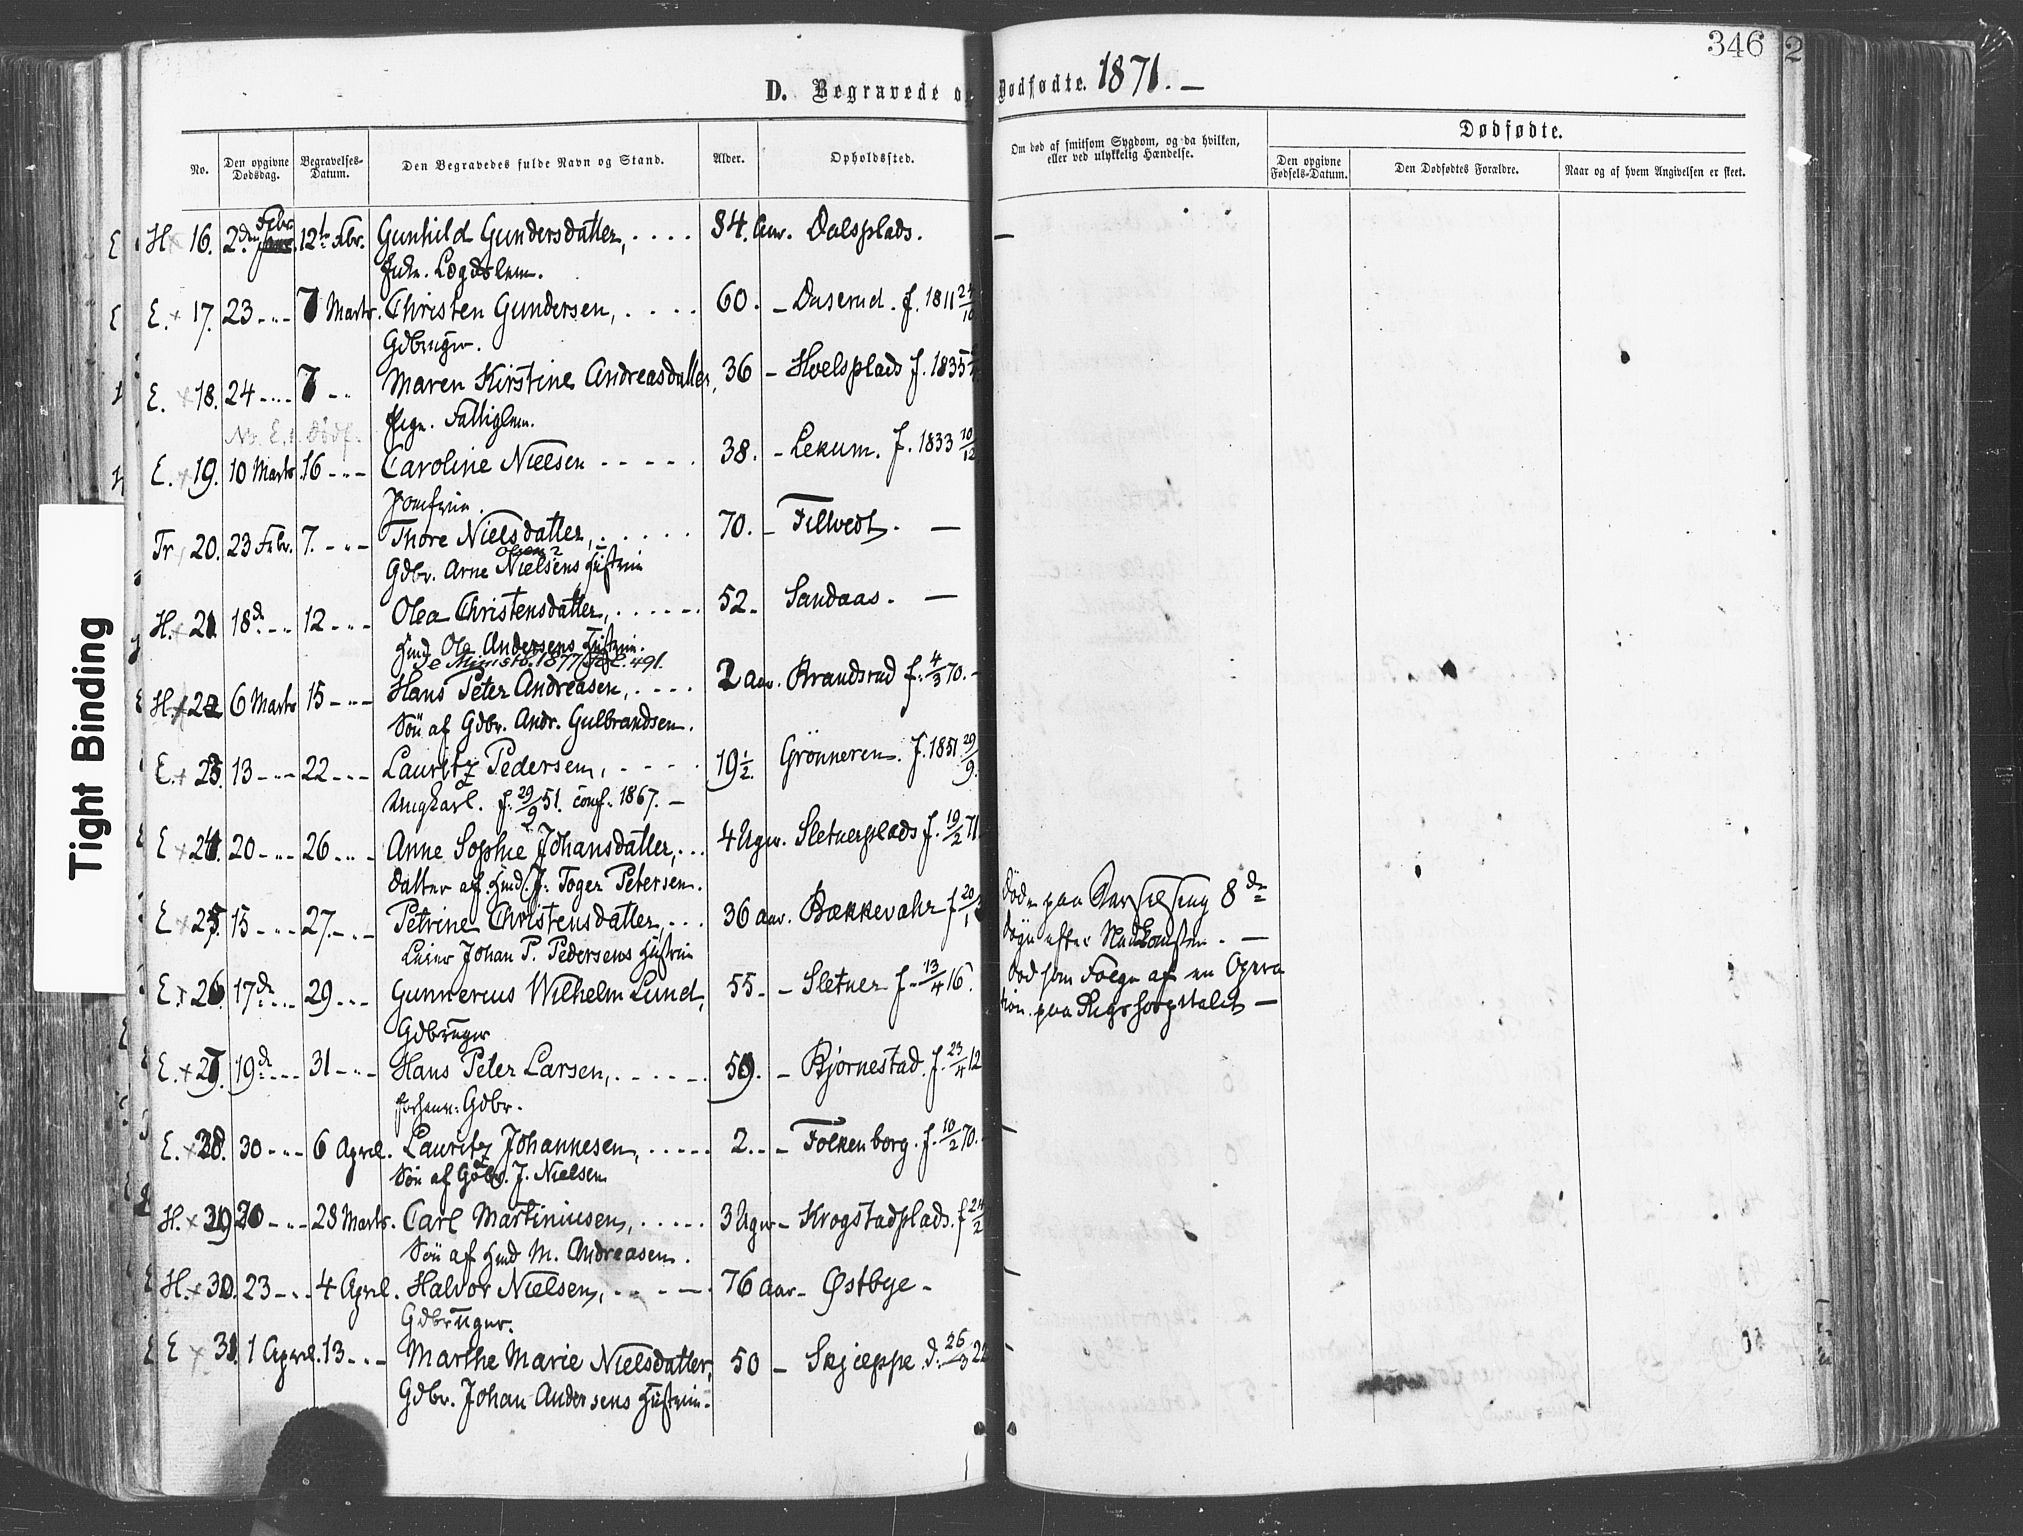 346
2
D. Begravede og Dødfødte. 1871. –
No.
Den opgivne Dødsdag.
Begravelses-Datum.
Den Begravedes fulde Navn og Stand.
Alder.
Opholdssted.
Om død af smitsom Sygdom, og da hvilken, eller ved ulykkelig Hændelse.
Dødfødte.
Den opgivne Fødsels-Datum.
Den Dødfødtes Forældre.
Naar og af hvem Angivelsen er skeet.
Tight Binding
H × 16. 2den Febr. 12te Febr. Gunhild Gundersdatter, . . . . 84. Aar. Dalsplads. –
Lægdslem.
E. × 17. 23 – " – 7 Marts. Christen Gundersen, . . . . 60. – Daserud. f. 1811 24/10
Gdbruger.
E. × 18. 24 – " – 7 – " Maren Kirstine Andreasdatter, 36 – Hoelsplads f. 1835
Pige. Fattiglem.
No. E. 1. Dødf.
E. × 19. 10 Marts 16 – " – Caroline Nielsen – – – – . 38. – Lekum. f. 1833 10/12
Jomfru.
Tr. 20. 23 Febr. 7. – " – Thore Nielsdatter, . . . . . 70. – Filtvedt. –
Olsen?
Gdbr. Arne Nielsens Hustru
H. × 21. 18de – " – 12 – " – Olea Christensdatter, . . . . . 52. Sandaas. –
Hmd. Ole Andersens Hustru.
Se Ministb. 1877 Fol. 491.
H. × 22 6 Marts 15 – " – Hans Peter Andreasen, . . . . 2 Aar. Brandsrud f. 4/3 70. –
Søn af Gdbr. Andr. Gulbrandsen.
E. × 23. 13 – " – 22 – " – Lauritz Pedersen, . – – – 19 1/2. Grønneren. f. 1851 29/9.
Ungkarl. f. 29/9 51. conf. 1867. –
E × 24. 20 – " – 26 – " – Anne Sophie Johansdatter, . . . 4 Uger. Sletnerplads f. 19/2 71
Datter af Hmd. J. Toger Petersen.
E × 25. 15 – " – 27. – " – Petrine Christensdatter, . . . 36 Aar. Bækkevahr f 20/1
Leier Johan P. Pedersens Hustru
Døde paa Barselseng 8de
Døgn efter Nedkomsten. –
E. × 26. 17de – " – 29 – " – Gunnerius Wilhelm Lund, 55. – Sletner f. 13/4 16.
Gdbruger
død som Følge af en Opera
tion. paa Rigshospitalet –
E. × 27. 19de – " – 31 – " – Hans Peter Larsen, . . – – – . 59. – Bjørnestad. f. 23/4 12
forhenv. Gdbr.
E. × 28. 30 – " – 6 April. Lauritz Johannesen, . . . . . 2. – – Folkenborg. f. 10/2 70. –
Søn af Gdbr. J. Nielsen
H. × 29 20 – " – 28 Marts. Carl Martiniusen, . . . . . 3 Uger – Krogstadplads. f 24/2
Søn af Hmd M. Andreasen.
H. × 30. 23 – " 4 April. Halvor Nielsen, . – – – – 76 Aar – Østbye – –
Gdbruger.
E × 31. 1 April. 13 – " – Marthe Marie Nielsdatter, 50 – Skjæppe. d. 26/3 22 –
Gdbr. Johan Andersens Hustru –